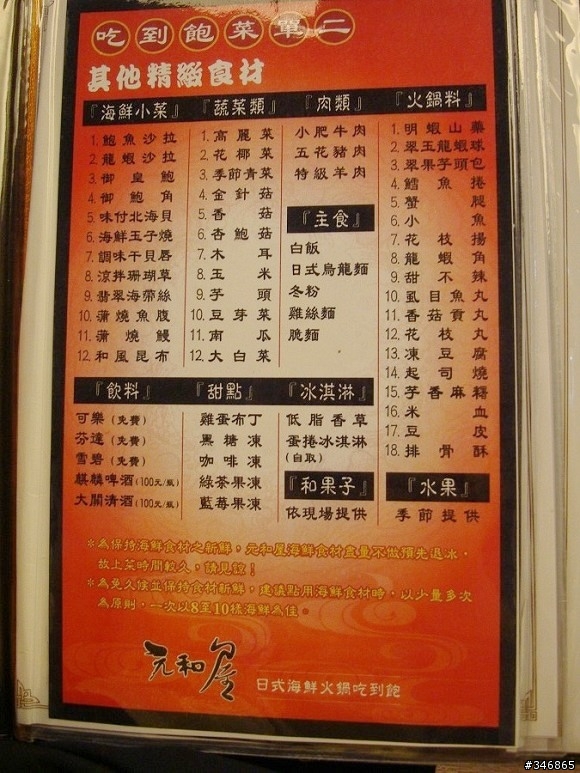 吃到飽菜單二
其他精緻食材
『海鮮小菜』
1. 鮑魚沙拉
2. 龍蝦沙拉
3. 御皇鮑
4. 御鮑角
5. 味付北海貝
6. 海鮮玉子燒
7. 調味干貝唇
8. 涼拌珊瑚草
9. 翡翠海帶絲
10. 蒲燒魚腹
11. 蒲燒鰻
12. 和風昆布
『蔬菜類』
1. 高麗菜
2. 花椰菜
3. 季節青菜
4. 金針菇
5. 香菇
6. 杏鮑菇
7. 木耳
8. 玉米
9. 芋頭
10. 豆芽菜
11. 南瓜
12. 大白菜
『肉類』
小肥牛肉
五花豬肉
特級羊肉
『主食』
白飯
日式烏龍麵
冬粉
雞絲麵
脆麵
『火鍋料』
1. 明蝦山藥
2. 翠玉龍蝦球
3. 翠果芋頭包
4. 鱈魚捲
5. 蟹腿
6. 小魚
7. 花枝揚
8. 龍蝦角
9. 甜不辣
10. 虱目魚丸
11. 香菇貢丸
12. 花枝丸
13. 凍豆腐
14. 起司燒
15. 芋香麻糬
16. 米血
17. 豆皮
18. 排骨酥
『飲料』
可樂(免費)
芬達(免費)
雪碧(免費)
麒麟啤酒(100元/瓶)
大關清酒(100元/瓶)
『甜點』
雞蛋布丁
黑糖凍
咖啡凍
綠茶果凍
藍莓果凍
『冰淇淋』
低脂香草
蛋捲冰淇淋
(自取)
『和果子』
依現場提供
『水果』
季節提供
※為保持海鮮食材之新鮮，元和屋海鮮食材盡量不做預先退冰，
故上菜時間較久，請見諒！
※為免久候並保持食材新鮮，建議點用海鮮食材時，以少量多次
為原則，一次以8至10樣海鮮為佳。
元和屋
日式海鮮火鍋吃到飽
#346865